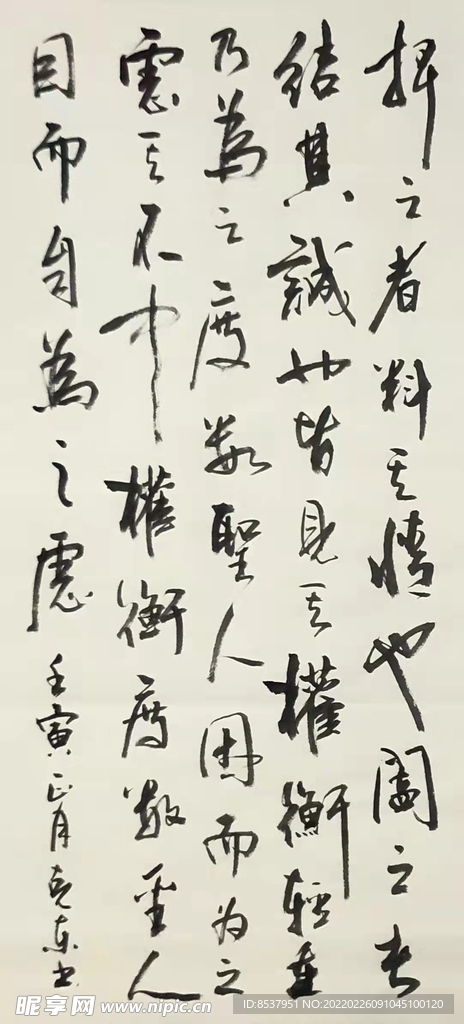 捭之者料其情也阖之者
结其誠也皆見其權衡轻重
乃為之度数聖人因而為之
慮其不中權衡度数圣人
因而自為之慮
壬寅正月克东书
昵享网 www.nipic.cn
ID:8537951 NO:20220226091045100120